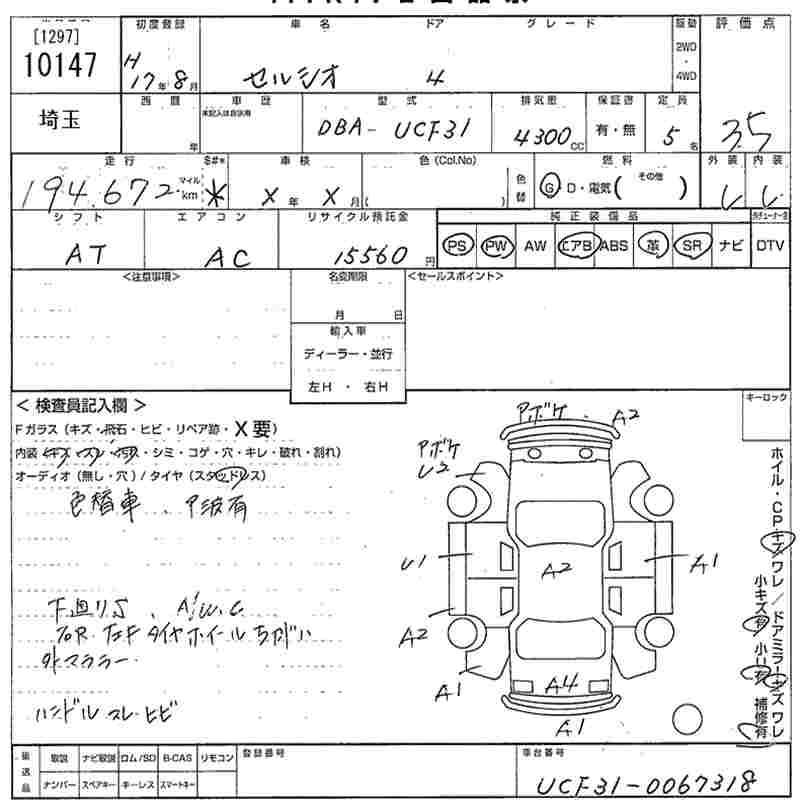 [1297]
10147
初度登録
H17年8月
車名
セルシオ
ドア
4
グレード
駆動
2WD
・
4WD
評価点
3.5
埼玉
西暦
年
車歴
未記入は自家用
型式
DBA-UCF31
排気量
4300CC
保証書
有・無
定員
5名
走行
194,672
マイル
km
S#*
*
車検
X年X月
色(Col.No)
( )
色替
燃料
G・D・電気( )
その他
外装
内装
シフト
AT
エアコン
AC
リサイクル預託金
15560円
純正装備品
PS PW AW エアB ABS 革 SR ナビ
DTV
<注意事項>
名変期限
月 日
輸入車
ディーラー・並行
左H ・ 右H
<セールスポイント>
<検査員記入欄>
Fガラス(キズ・飛石・ヒビ・リペア跡・X要)
内装(キズ・スレ・汚れ・シミ・コゲ・穴・キレ・破れ・割れ)
オーディオ(無し・穴)/タイヤ(スタッドレス)
色替車、P波有
下廻りS、A/W.C
外マフラー
ハンドルスレ・ヒビ
キーロック
Pボケ
A2
Pボケ
U2
U1
A2
A1
A2
A1
A4
A1
ホイル・CPキズワレ/ドアミラーキズワレ
小キズ有 小U有 補修有
後送品
取説 ナビ取説 ロム/SD B-CAS リモコン
ナンバー スペアキー キーレス スマートキー
登録番号
車台番号
UCF31-0067318